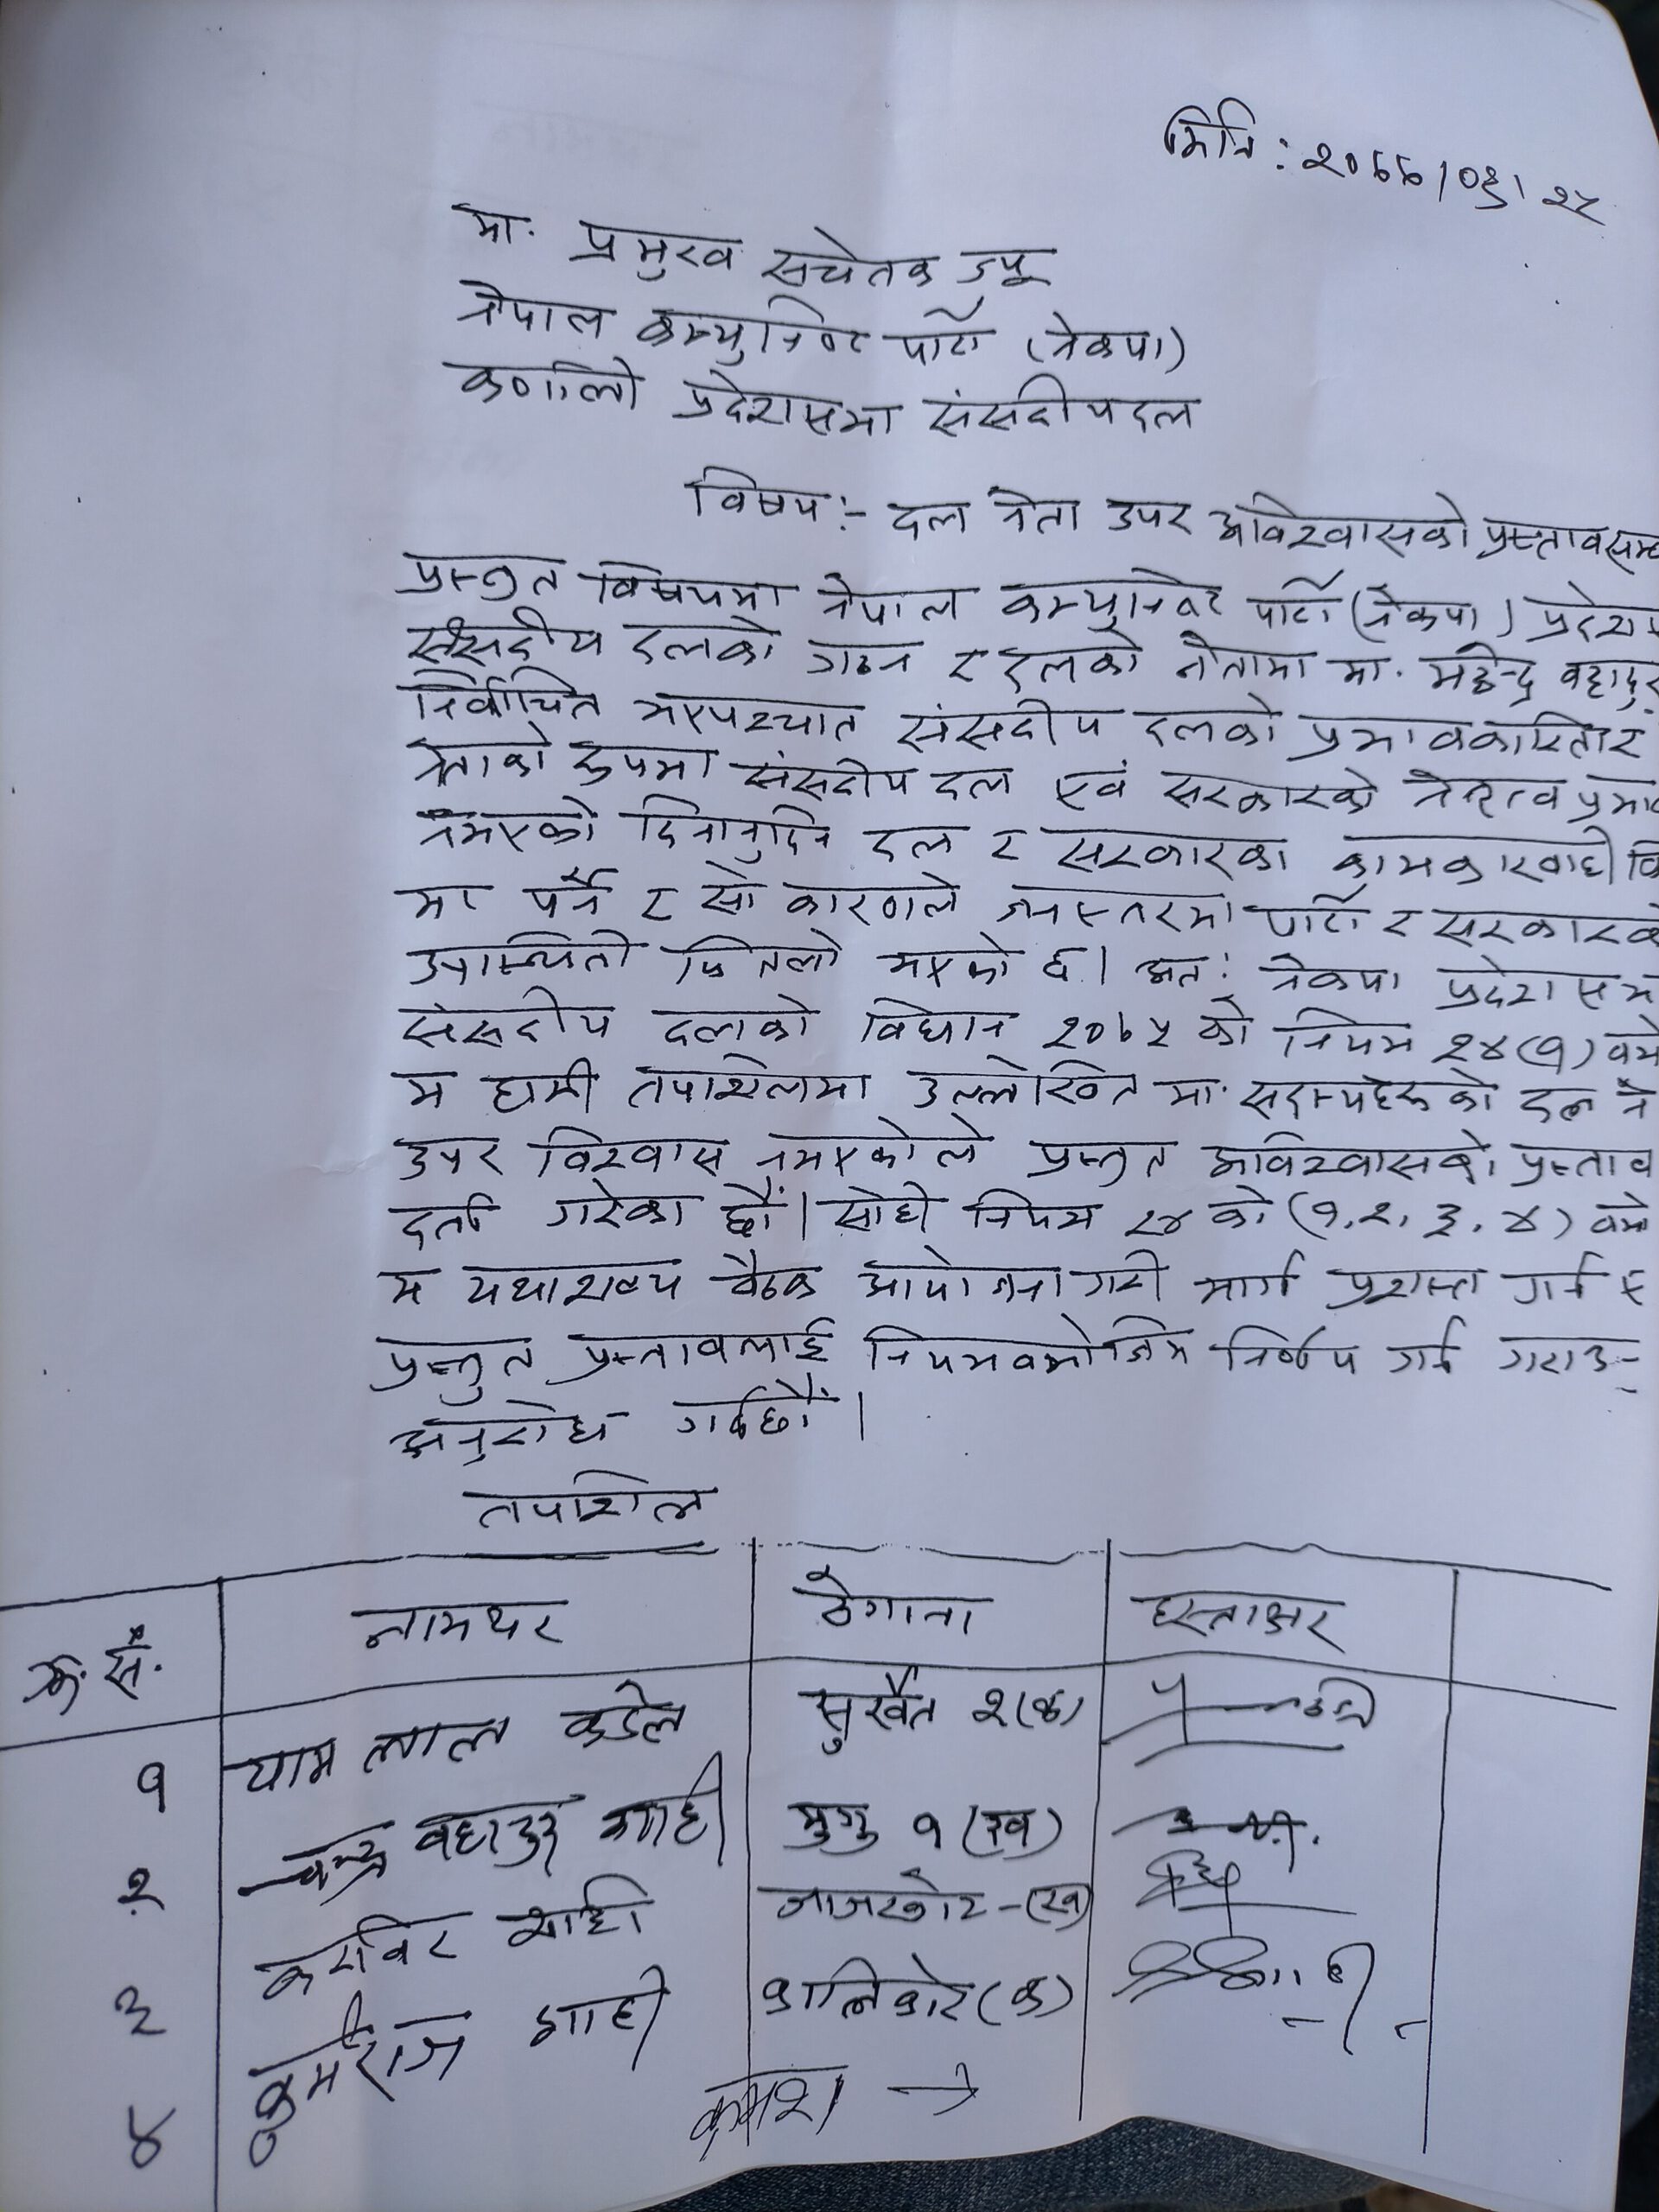 मिति: २०७७/०६/२५
मा. प्रमुख सचेतक ज्यू
नेपाल कम्युनिष्ट पार्टी (नेकपा)
कर्णाली प्रदेशसभा संसदीय दल
विषय:- दल नेता उपर अविश्वासको प्रस्ताव सम्ब
प्रस्तुत विषयमा नेपाल कम्युनिष्ट पार्टी (नेकपा) प्रदेश
संसदीय दलको गठन र दलको नेतामा मा. महेन्द्र बहादुर
निर्वाचित भएपश्चात संसदीय दलको प्रभावकारिता र
नेताको रुपमा संसदीय दल एवं सरकारको नेतृत्व प्रभाव
नभएको दिनानुदिन दल र सरकारका कामकारवाही वि
मा पर्ने र सो कारणले जनस्तरमा पार्टी र सरकारको
उपस्थिती फितलो भएको छ। अत: नेकपा प्रदेश सभ
संसदीय दलको विधान २०७५ को नियम २४(१) वमो
म हामी तपशिलमा उल्लेखित मा. सदस्यहरुको दल ने
उपर विश्वास नभएकोले प्रस्तुत अविश्वासको प्रस्ताव
दर्ता गरेका छौं। सोही नियम २४ को (१, २, ३, ४) वमो
म यथाशक्य बैठक आयोजना गरी मार्ग प्रशस्त गर्न र
प्रस्तुत प्रस्तावलाई नियमवमोजिम निर्णय गर्न गराउन
अनुरोध गर्दछौं।
तपशिल
क्र.सं. नामथर ठेगाना हस्ताक्षर
१ याम लाल कंडेल सुर्खेत २(क)
२ चन्द्र बहादुर शाही मुगु १ (ख)
३ करविर शाही जाजरकोट-(ख)
४ कुर्मराज शाही कालिकोट (क)
क्रमश: →